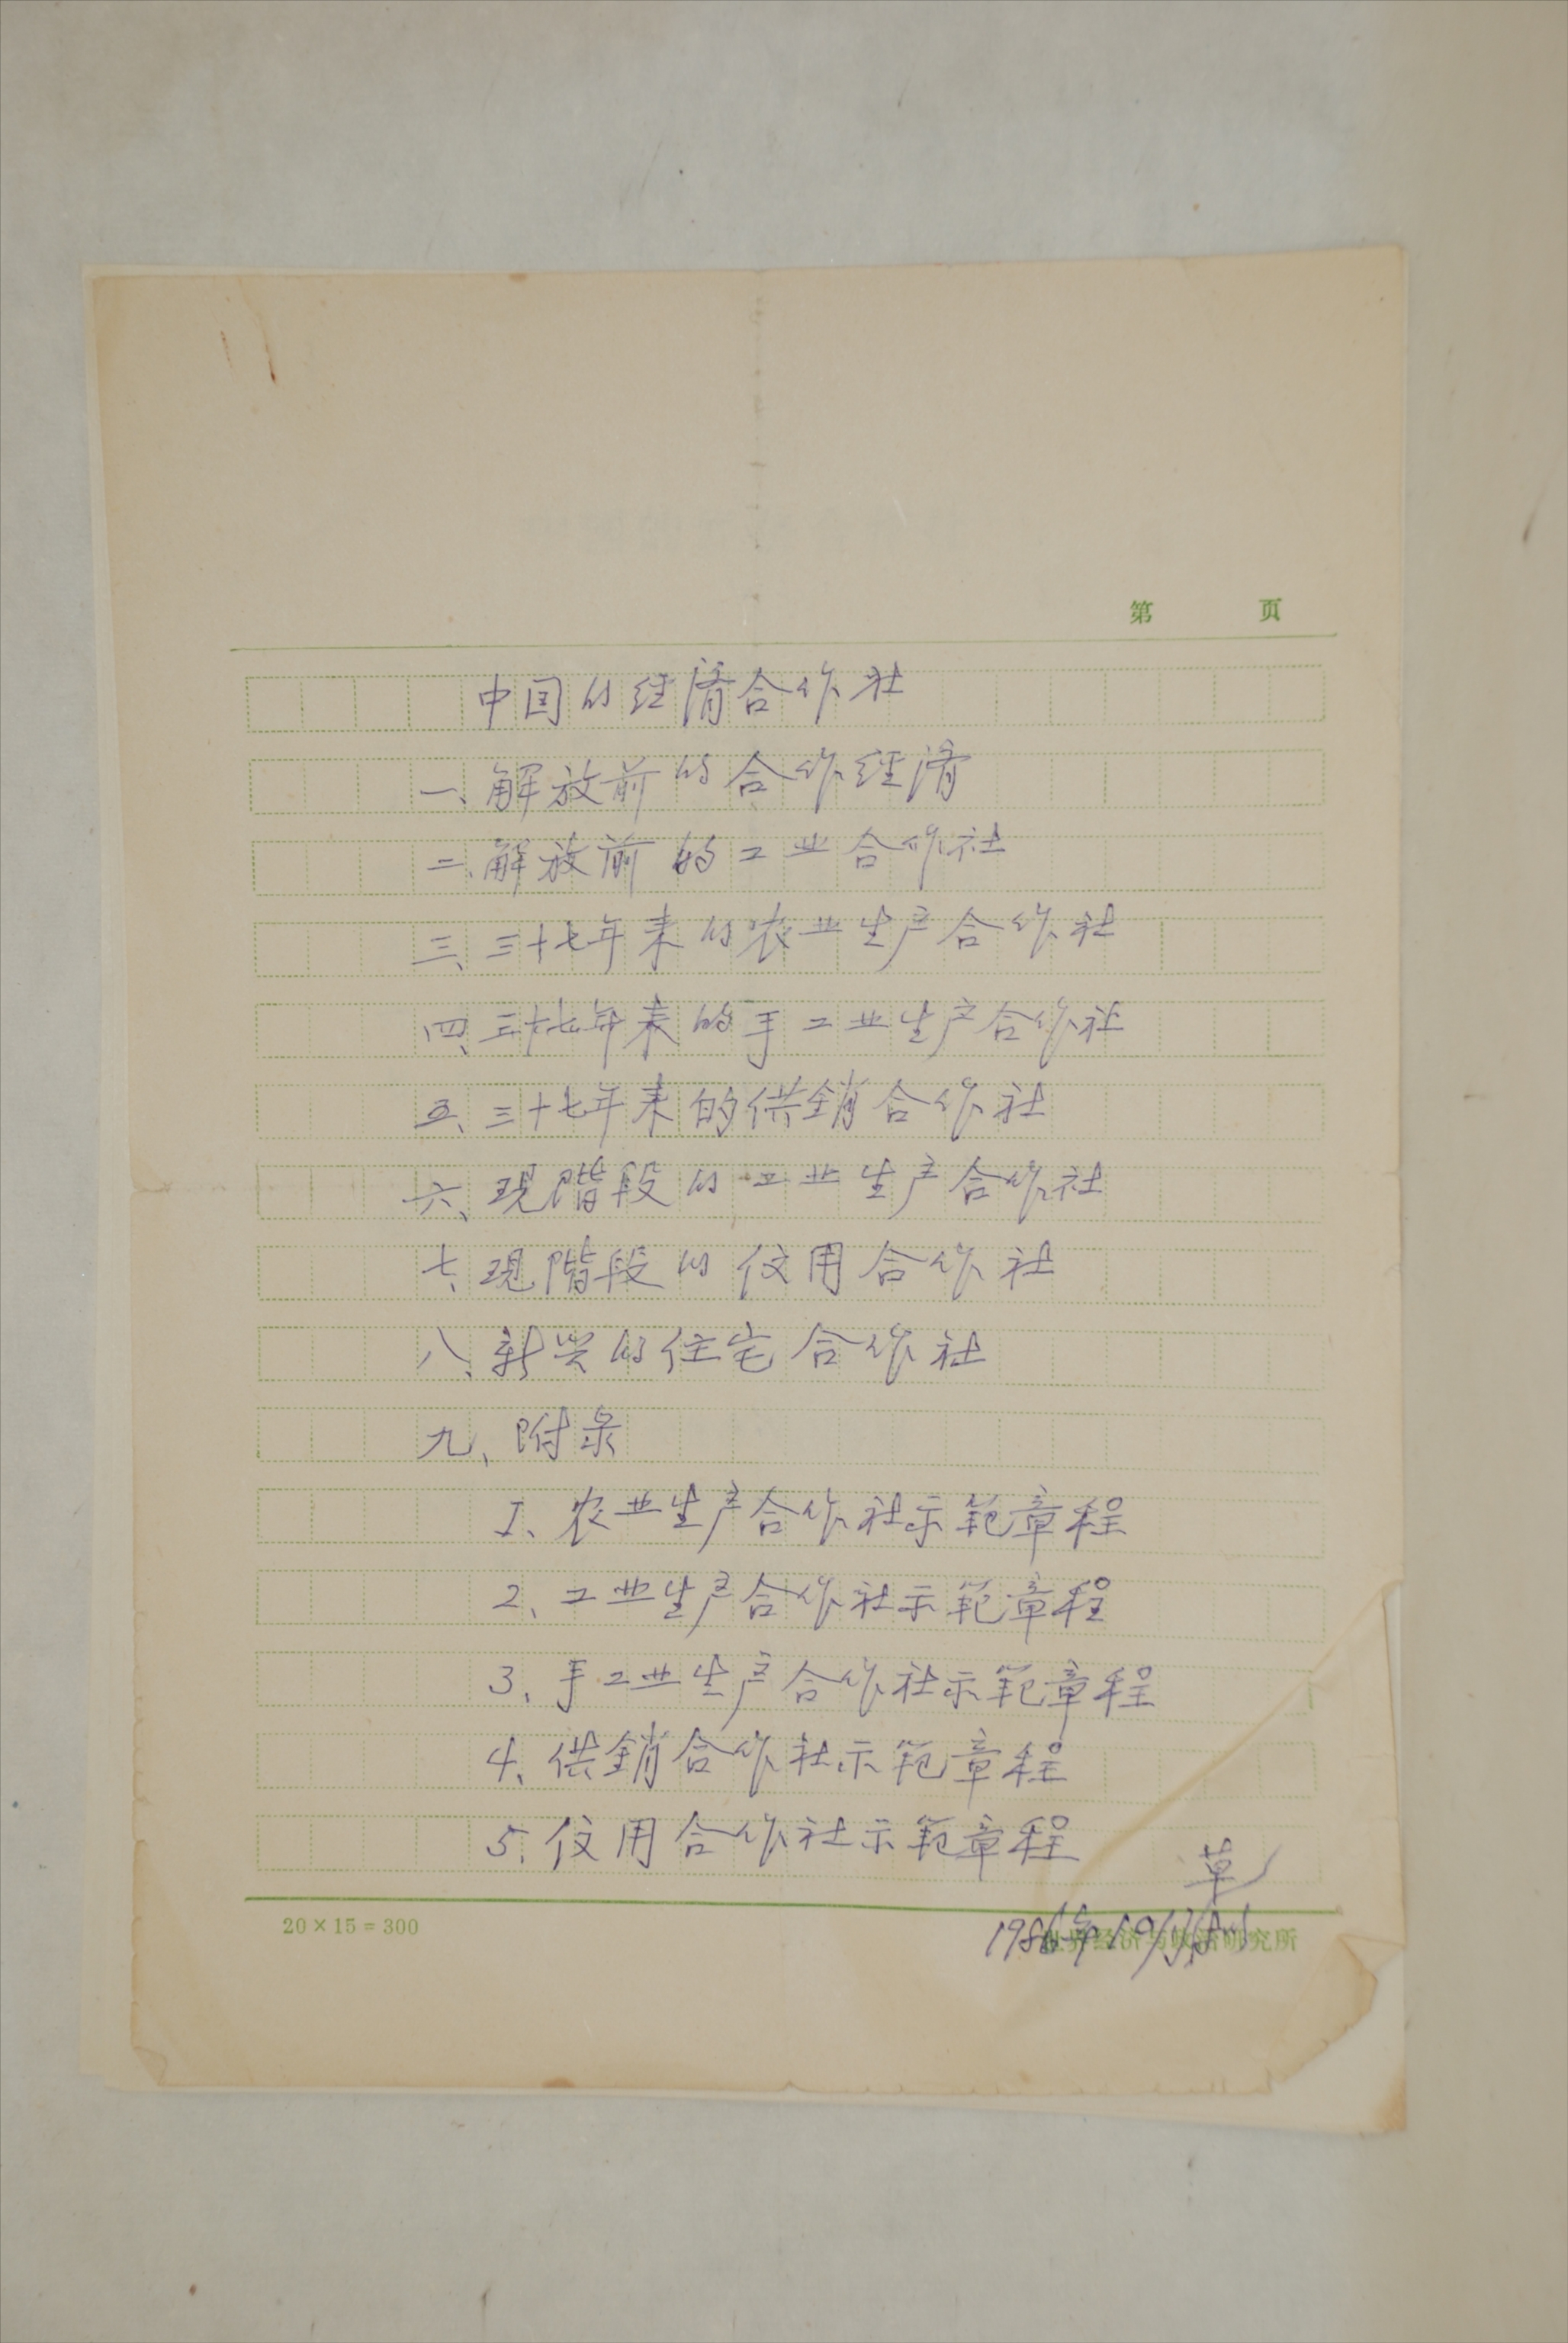 第 页
中国的经济合作社
一、解放前的合作经济
二、解放前的工业合作社
三、三十七年来的农业生产合作社
四、三十七年来的手工业生产合作社
五、三十七年来的供销合作社
六、現階段的工业生产合作社
七、現階段的信用合作社
八、新兴的住宅合作社
九、附录
1、农业生产合作社示範章程
2、工业生产合作社示範章程
3、手工业生产合作社示範章程
4、供銷合作社示範章程
5、信用合作社示範章程
草
20×15=300
1986年10月
世界经济与政治研究所